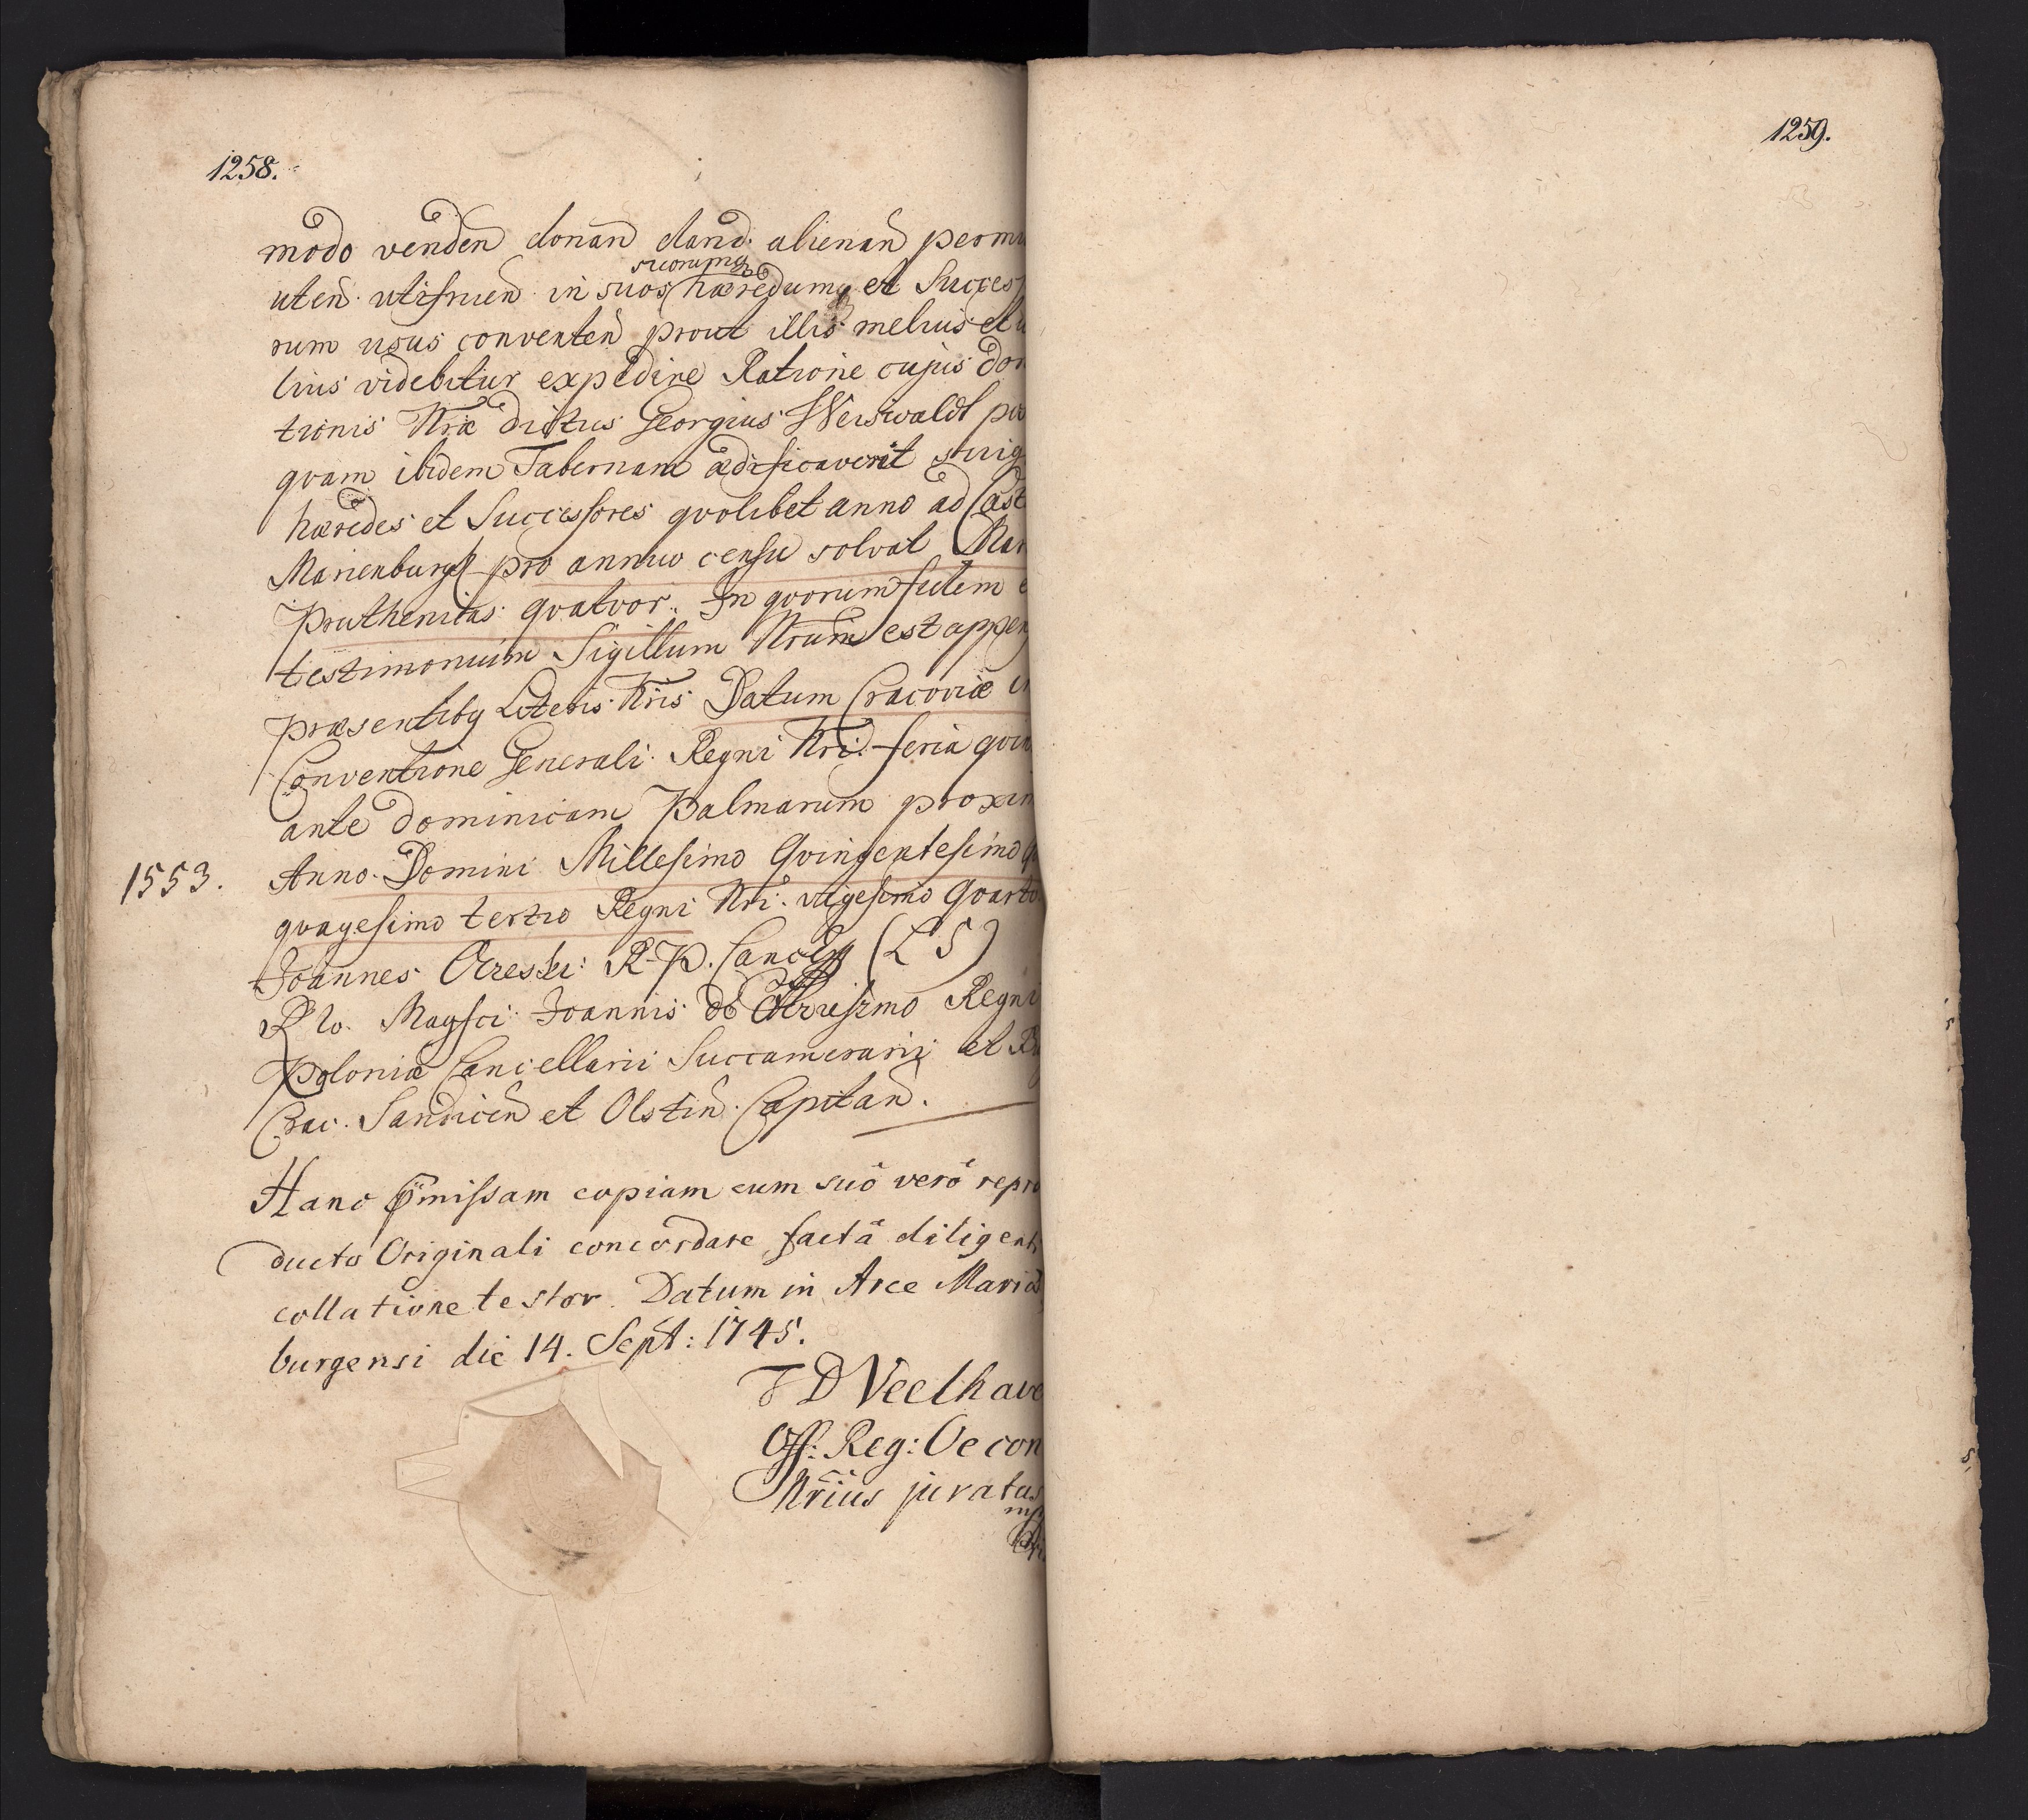 1258.
modo vendeñ donañ dand. alienañ permu
suorumq
uteñ. utifrueñ in suos hæredumq et Succes
rum usus conventeñ prout illis melius et u
lius videbitur expedire Ratione cujus don
tionis Nræ dictus Georgius Weiswaldt po
qvam ibidem Tabernam ædificaverit suiq
hæredes et Successores qvolibet anno ad Cast
Marienburg pro annuo censu solvat Mar
Pruthenicas qvatvor. In qvorum fidem e
testimonium Sigillum Nrum est appen
præsentibq Literis Nris Datum Cracoviæ in
Conventione Generali Regni Nri. feria qvin
ante dominicam Palmarum proxim
1553. Anno Domini Millesimo Qvingentesimo qv
qvagesimo tertio Regni Nri. vigesimo Qvarto
Joannes Ocreski R. P. Cancellq (L S)
Rlo. Magfci Joannis de Regni
Poloniæ Cancellarii Succamerarii et B
Crac. Sandiceñ et Olstiñ. Capitañ.
Hanc p̄missam copiam cum suô verô repro
ducto Originali concordare factâ diligenti
collatione testor. Datum in Arce Mariæ
burgensi die 14. Sept: 1745.
F D Veelhave
Off: Reg: Oecon
Nrius juratus
mp
1259.